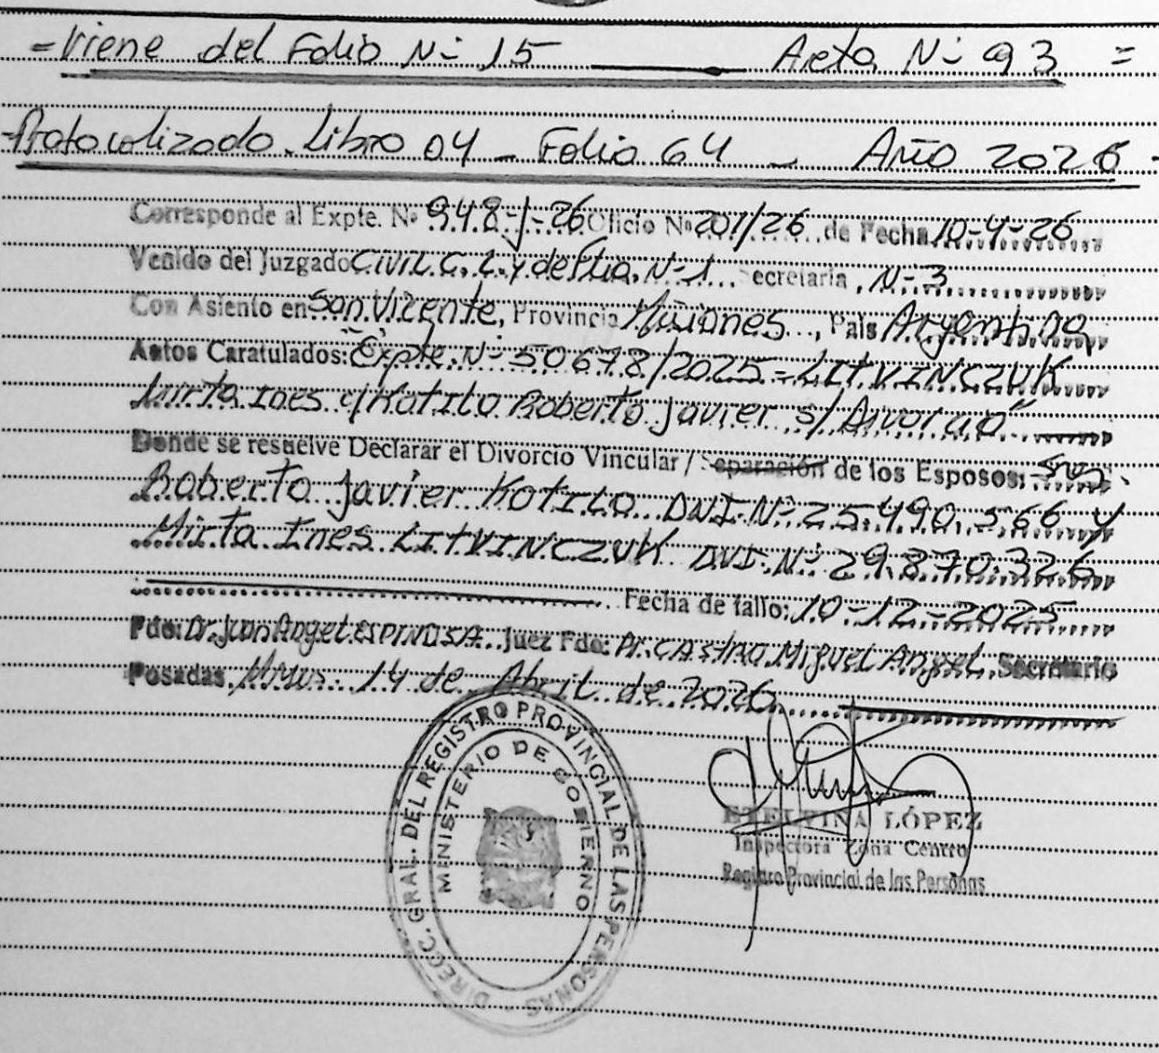 = Viene del Folio Nº 15 ——— Acta Nº 93 =
= Protocolizado. Libro 04 - Folio 64 - Año 2026 -
Corresponde al Expte. Nº 948-J-26 Oficio Nº 201/26 de Fecha 10-4-26
Venido del Juzgado Civil. C, L. y de Flia. Nº 1 Secretaria, Nº 3
Con Asiento en San Vicente, Provincia Misiones, País Argentina
Autos Caratulados: Expte. Nº 50678/2025 - LITVINCZUK
Mirta Ines c/ Kotilo Roberto Javier s/ Divorcio"
Donde se resuelve Declarar el Divorcio Vincular / Separación de los Esposos: Sres.
Roberto Javier Kotilo DNI Nº 25.490.566 y
Mirta Ines LITVINCZUK DNI. Nº 29.870.326
Fecha de fallo: 10-12-2025
Fdo: Dr. Juan Angel ESPINOSA. Juez Fdo: Dr. CASTRO Miguel Angel, Secretario
Posadas, Mnes. 14 de Abril de 2026
DIRECC. GRAL. DEL REGISTRO PROVINCIAL DE LAS PERSONAS
MINISTERIO DE GOBIERNO
ETELVINA LÓPEZ
Inspectora Zona Centro
Registro Provincial de las Personas